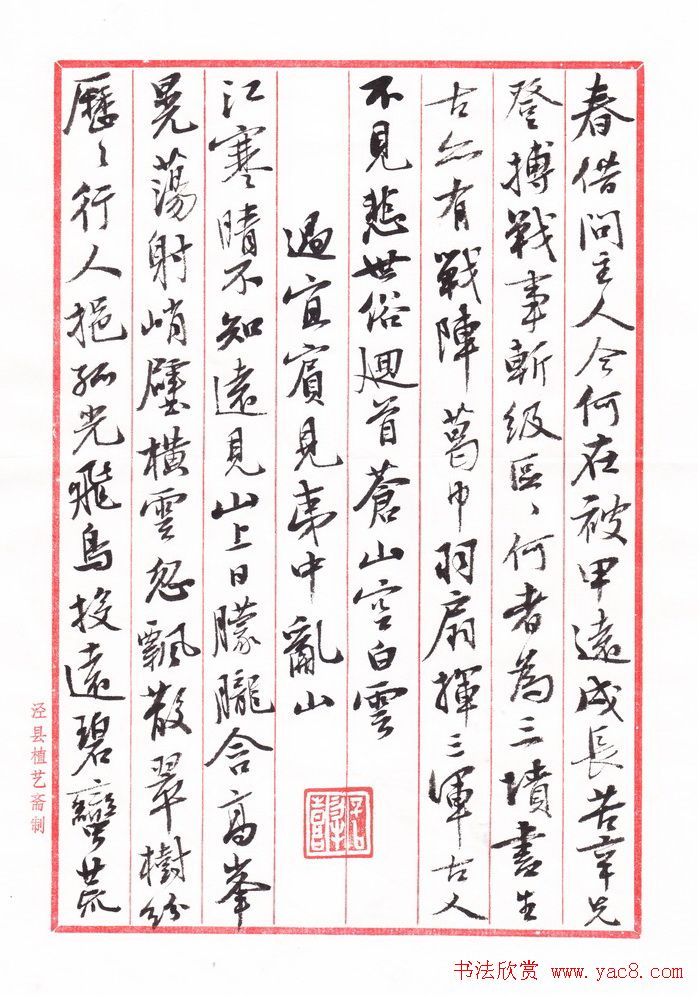 春借问主人今何在被甲遠戍長苦辛先
登搏戰事斬級區々何者為三墳書生
古亦有戰陣葛巾羽扇揮三軍古人
不見悲世俗迴首蒼山空白雲
過宜賓見夷中亂山
江寒晴不知遠見山上日朦朧含高峯
晃蕩射峭壁橫雲忽飄散翠樹紛
歷々行人挹孤光飛鳥投遠碧蠻荒
泾县植艺斋制
书法欣赏 www.yac8.com